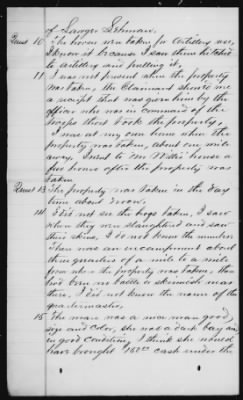 of Sawyer Lehman.
Ques 10 The horses were taken for Artillery use,
I know it because I saw them hitched
to artillery and pulling it,
11 I was not present when the property
was taken, the Claimant showed me
a receipt that was given him by the
officer who was in command of the
troops that took the property,
I was at my own home when the
property was taken, about one mile
away, I went to Mr Willis' house a
few hours after the property was
taken.
Ques 13 The property was taken in the day
time about noon.
14 I did not see the hogs taken, I saw
when they were slaughtered and saw
their skins, I do not know the number
There was an encampment about
three quarters of a mile to a mile
from where the property was taken, there
had been no battle or skirmish near
there, I did not know the name of the
quartermaster.
15 The mare was a mare good
size and color, she was a dark bay
in good condition, I think she would
have brought 150.00 cash under the